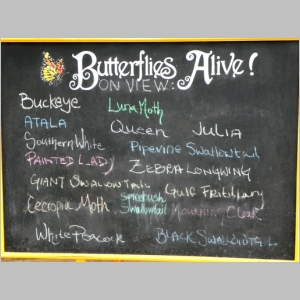 Butterflies Alive!
ON VIEW:
Buckeye Luna Moth
ATALA Queen Julia
Southern White Pipevine Swallowtail
PAINTED LADY ZEBRA LONGWING
GIANT SWALLOWTAIL Gulf Fritillary
Cecropia Moth Spicebush Swallowtail Mourning Cloak
White Peacock BLACK SWALLOWTAIL